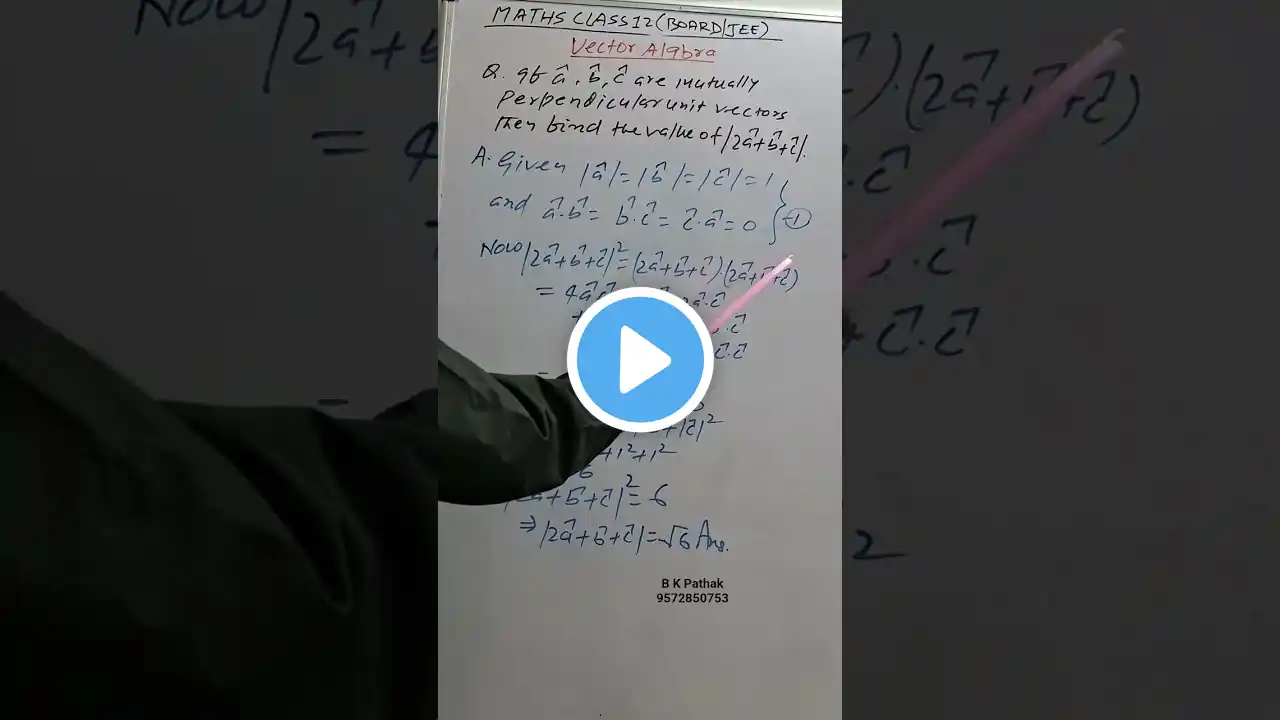 MATHS CLASS 12 (BOARD/JEE)
Vector Algbra
Q. If â, b̂, ĉ are mutually
perpendicular unit vectors
then find the value of |2a⃗+b⃗+c⃗|.
A. Given |â|=|b̂|=|c⃗|=1
and a⃗.b⃗= b⃗.c⃗= c⃗.a⃗=0 } ①
Now |2a⃗+b⃗+c⃗|²=(2a⃗+b⃗+c⃗).(2a⃗+b⃗+c⃗)
= 4a⃗. a⃗.c⃗
.c⃗
c⃗.c⃗
=
+|c⃗|²
+1²+1²
6
+b⃗+c⃗|²=6
⇒|2a⃗+b⃗+c⃗|=√6 Ans.
B K Pathak
9572850753